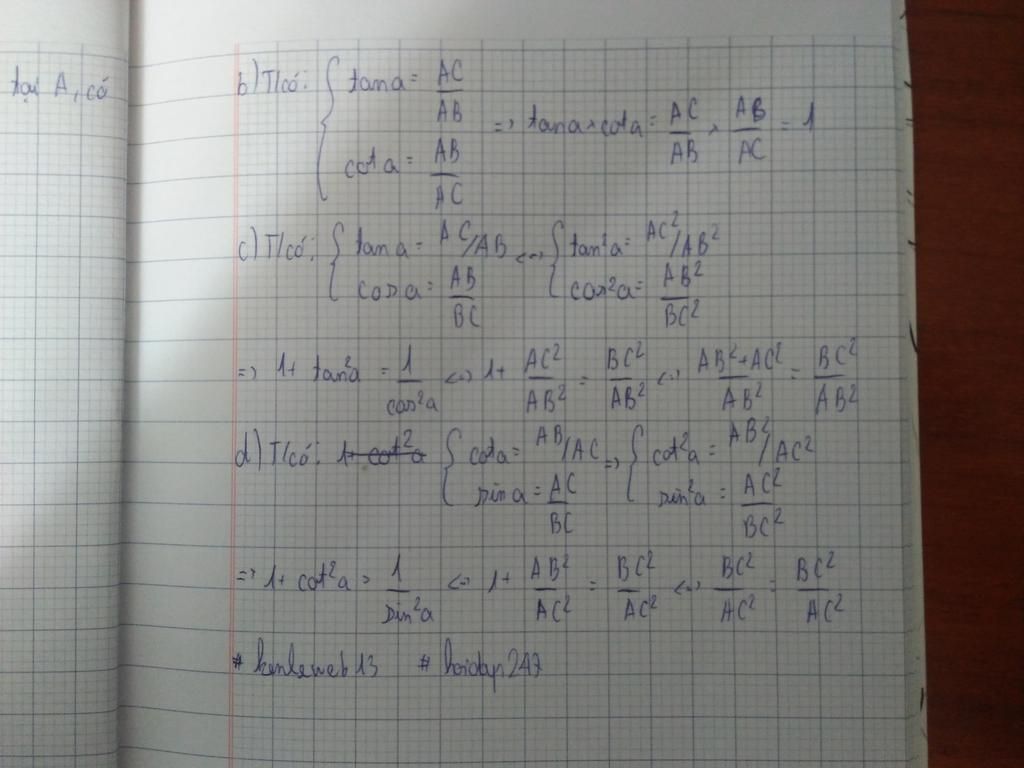 tại A, có
b) T/có: { tan a = AC/AB
cot a = AB/AC
=> tan a × cot a = AC/AB × AB/AC = 1
c) T/có: { tan a = AC/AB <=> { tan²a = AC²/AB²
cos a = AB/BC cos²a = AB²/BC²
=> 1+ tan²a = 1/cos²a <=> 1+ AC²/AB² = BC²/AB² <=> AB²+AC²/AB² = BC²/AB²
d) T/có: 1+ cot²a { cot a = AB/AC => { cot²a = AB²/AC²
sin a = AC/BC sin²a = AC²/BC²
=> 1+ cot²a = 1/sin²a <=> 1+ AB²/AC² = BC²/AC² <=> BC²/AC² = BC²/AC²
# hoidap247